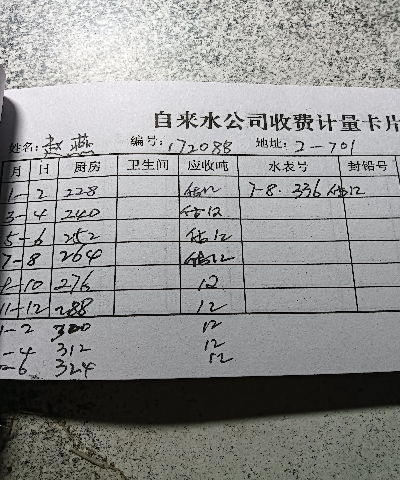 自来水公司收费计量卡片
姓名: 赵燕 编号: 172088 地址: 2-701
月 日 厨房 卫生间 应收吨 水表号 封铅号
1-2 228 估12 7-8. 336 估12
3-4 240 估12
5-6 252 估12
7-8 264 估12
9-10 276 12
11-12 288 12
1-2 300 12
-4 312 12
-6 324 12